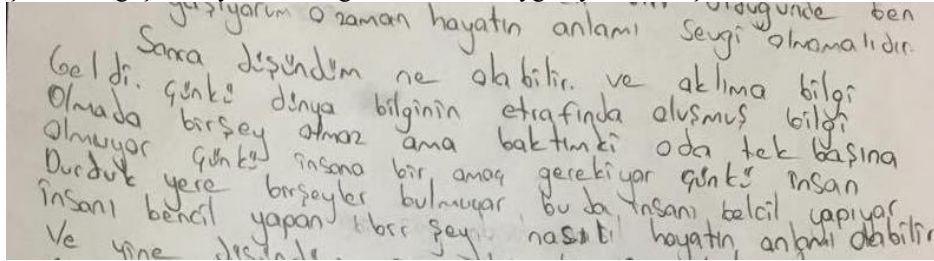 yaşıyorum o zaman hayatın anlamı sevgi olmamalıdır.
Sonra düşündüm ne olabilir. ve aklıma bilgi
Geldi. Çünkü dünya bilginin etrafında oluşmuş bilgi
Olmada birşey olmaz ama baktımki oda tek başına
olmuyor Çünkü insana bir amaç gerekiyor Çünkü insan
Durduk yere birşeyler bulmuyor bu da insanı belcil yapıyor
insanı bencil yapan bir şey nasıl hayatın anlamı olabilir
Ve yine